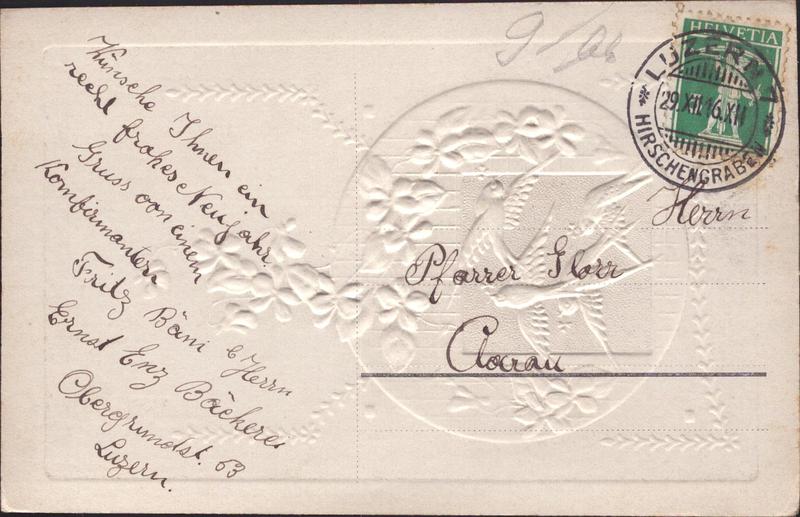 Wünsche Ihnen ein
recht frohes Neujahr.
Gruss von einem
Konfirmanten
Fritz Bäni b/ Herrn
Ernst Enz Bäckerei
Obergrundst. 63
Luzern.
HELVETIA
LUZERN 1
29.XII.16.XII
HIRSCHENGRABEN
Herrn
Pfarrer
Aarau